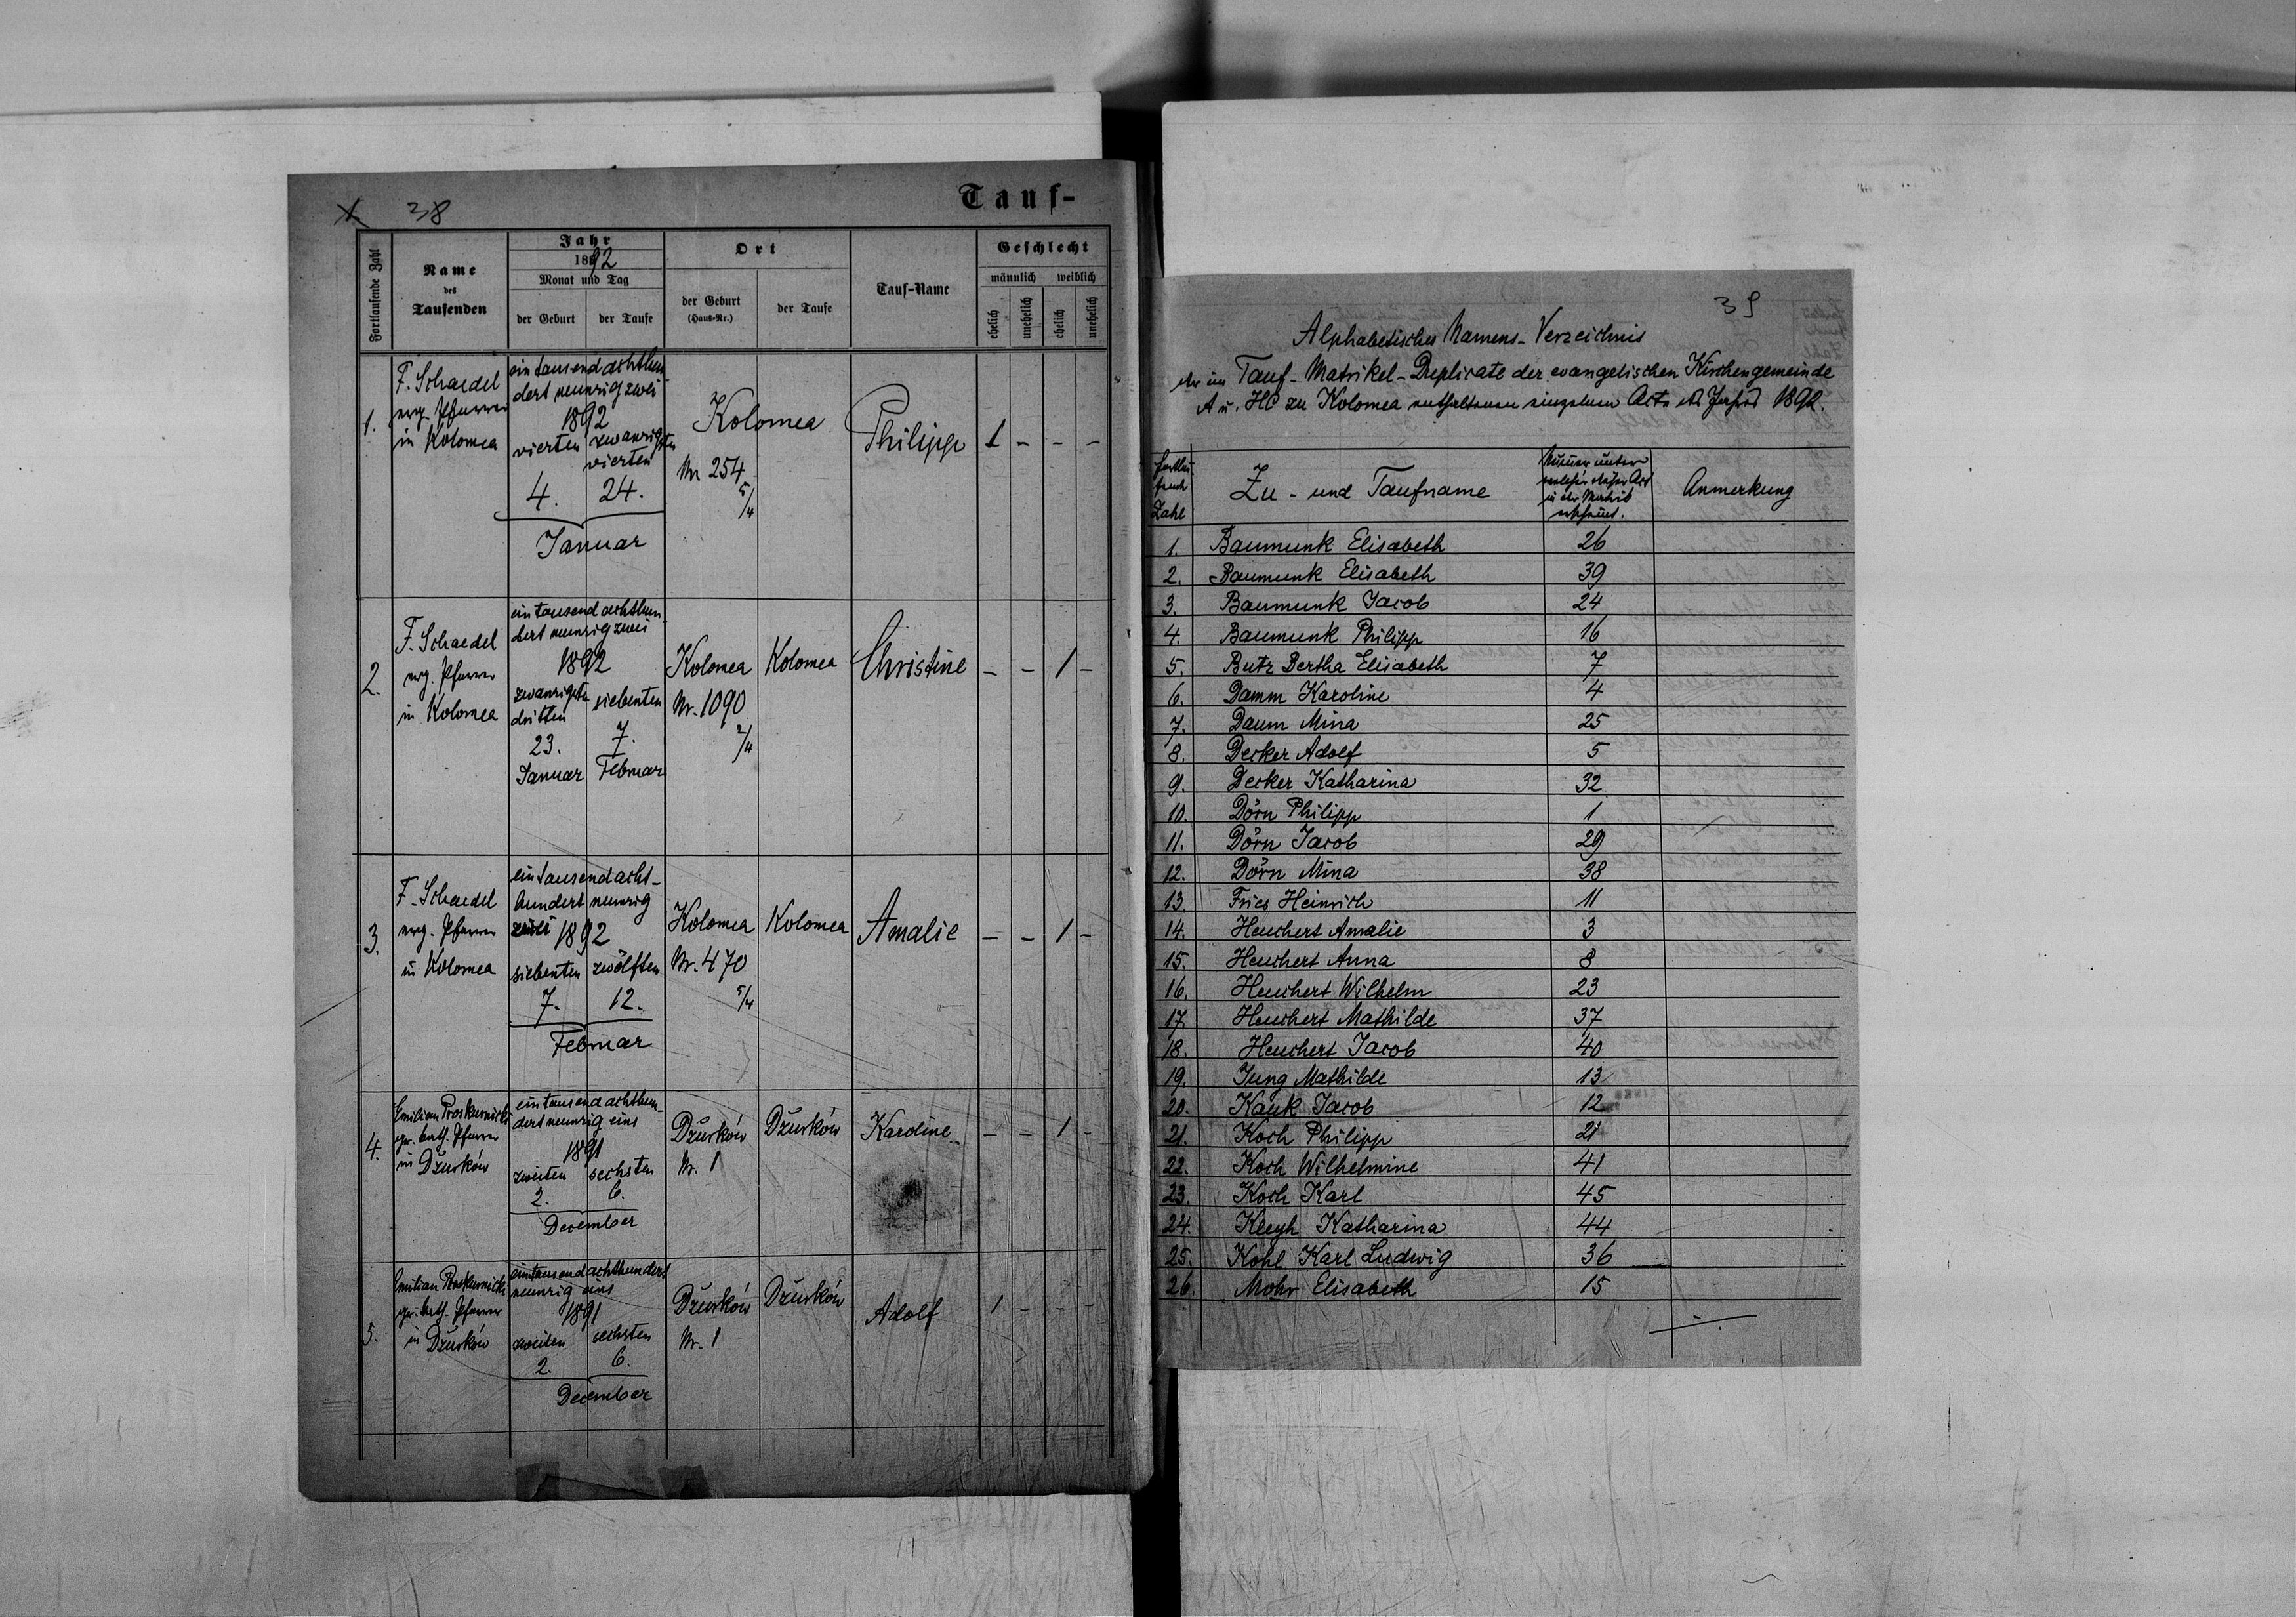 1 38
Tauf-
Fortlaufende Zahl
Name
des
Taufenden
Jahr
1892
Monat und Tag
der Geburt
der Taufe
Ort
der Geburt
(Haus-Nr.)
der Taufe
Tauf-Name
Geschlecht
männlich weiblich
ehelich
unehelich
ehelich
unehelich
1.
F. Schaedel
evg. Pfarrer
in Kolomea
ein tausend achthun-
dert neunzig zwei
1892
vierten zwanzigsten
vierten
4. 24.
Januar
Kolomea
Nr. 254
5/4
Philipp
1 - - -
2.
F. Schaedel
evg. Pfarrer
in Kolomea
ein tausend achthun-
dert neunzig zwei
1892
zwanzigsten siebenten
dritten
23. 7.
Januar Februar
Kolomea Kolomea
Nr. 1090
2/4
Christine
- - 1 -
3.
F. Schaedel
evg. Pfarrer
in Kolomea
ein tausend acht-
hundert neunzig
zwei 1892
siebenten zwölften
7. 12.
Februar
Kolomea Kolomea
Nr. 470
5/4
Amalie
- - 1 -
4.
Emilian Proskurnicki
gr. kath. Pfarrer
in Dżurków
ein tausend achthun-
dert neunzig eins
1891
zweiten sechsten
2. 6.
December
Dżurków Dżurków
Nr. 1
Karoline
- - 1 -
5.
Emilian Proskurnicki
gr. kath. Pfarrer
in Dżurków
ein tausend achthundert
neunzig eins
1891
zweiten sechsten
2. 6.
December
Dżurków Dżurków
Nr. 1
Adolf
1 - - -
39
Alphabetisches Namens-Verzeichnis
der im Tauf-Matrikel-Duplicate der evangelischen Kirchengemeinde
A u. HC zu Kolomea enthaltenen einzelnen Acte des Jahres 1892.
Fortlau-
fende
Zahl
Zu- und Taufname
Numer unter
welcher dieser Act
in der Matrik
erscheint.
Anmerkung
1. Baumunk Elisabeth 26
2. Baumunk Elisabeth 39
3. Baumunk Jacob 24
4. Baumunk Philipp 16
5. Butz Bertha Elisabeth 7
6. Damm Karoline 4
7. Daum Mina 25
8. Decker Adolf 5
9. Decker Katharina 32
10. Dörn Philipp 1
11. Dörn Jacob 29
12. Dörn Mina 38
13. Fries Heinrich 11
14. Heuchert Amalie 3
15. Heuchert Anna 8
16. Heuchert Wilhelm 23
17. Heuchert Mathilde 37
18. Heuchert Jacob 40
19. Jung Mathilde 13
20. Kauk Jacob 12
21. Koch Philipp 21
22. Koch Wilhelmine 41
23. Koch Karl 45
24. Kleyh Katharina 44
25. Kohl Karl Ludwig 36
26. Mohr Elisabeth 15